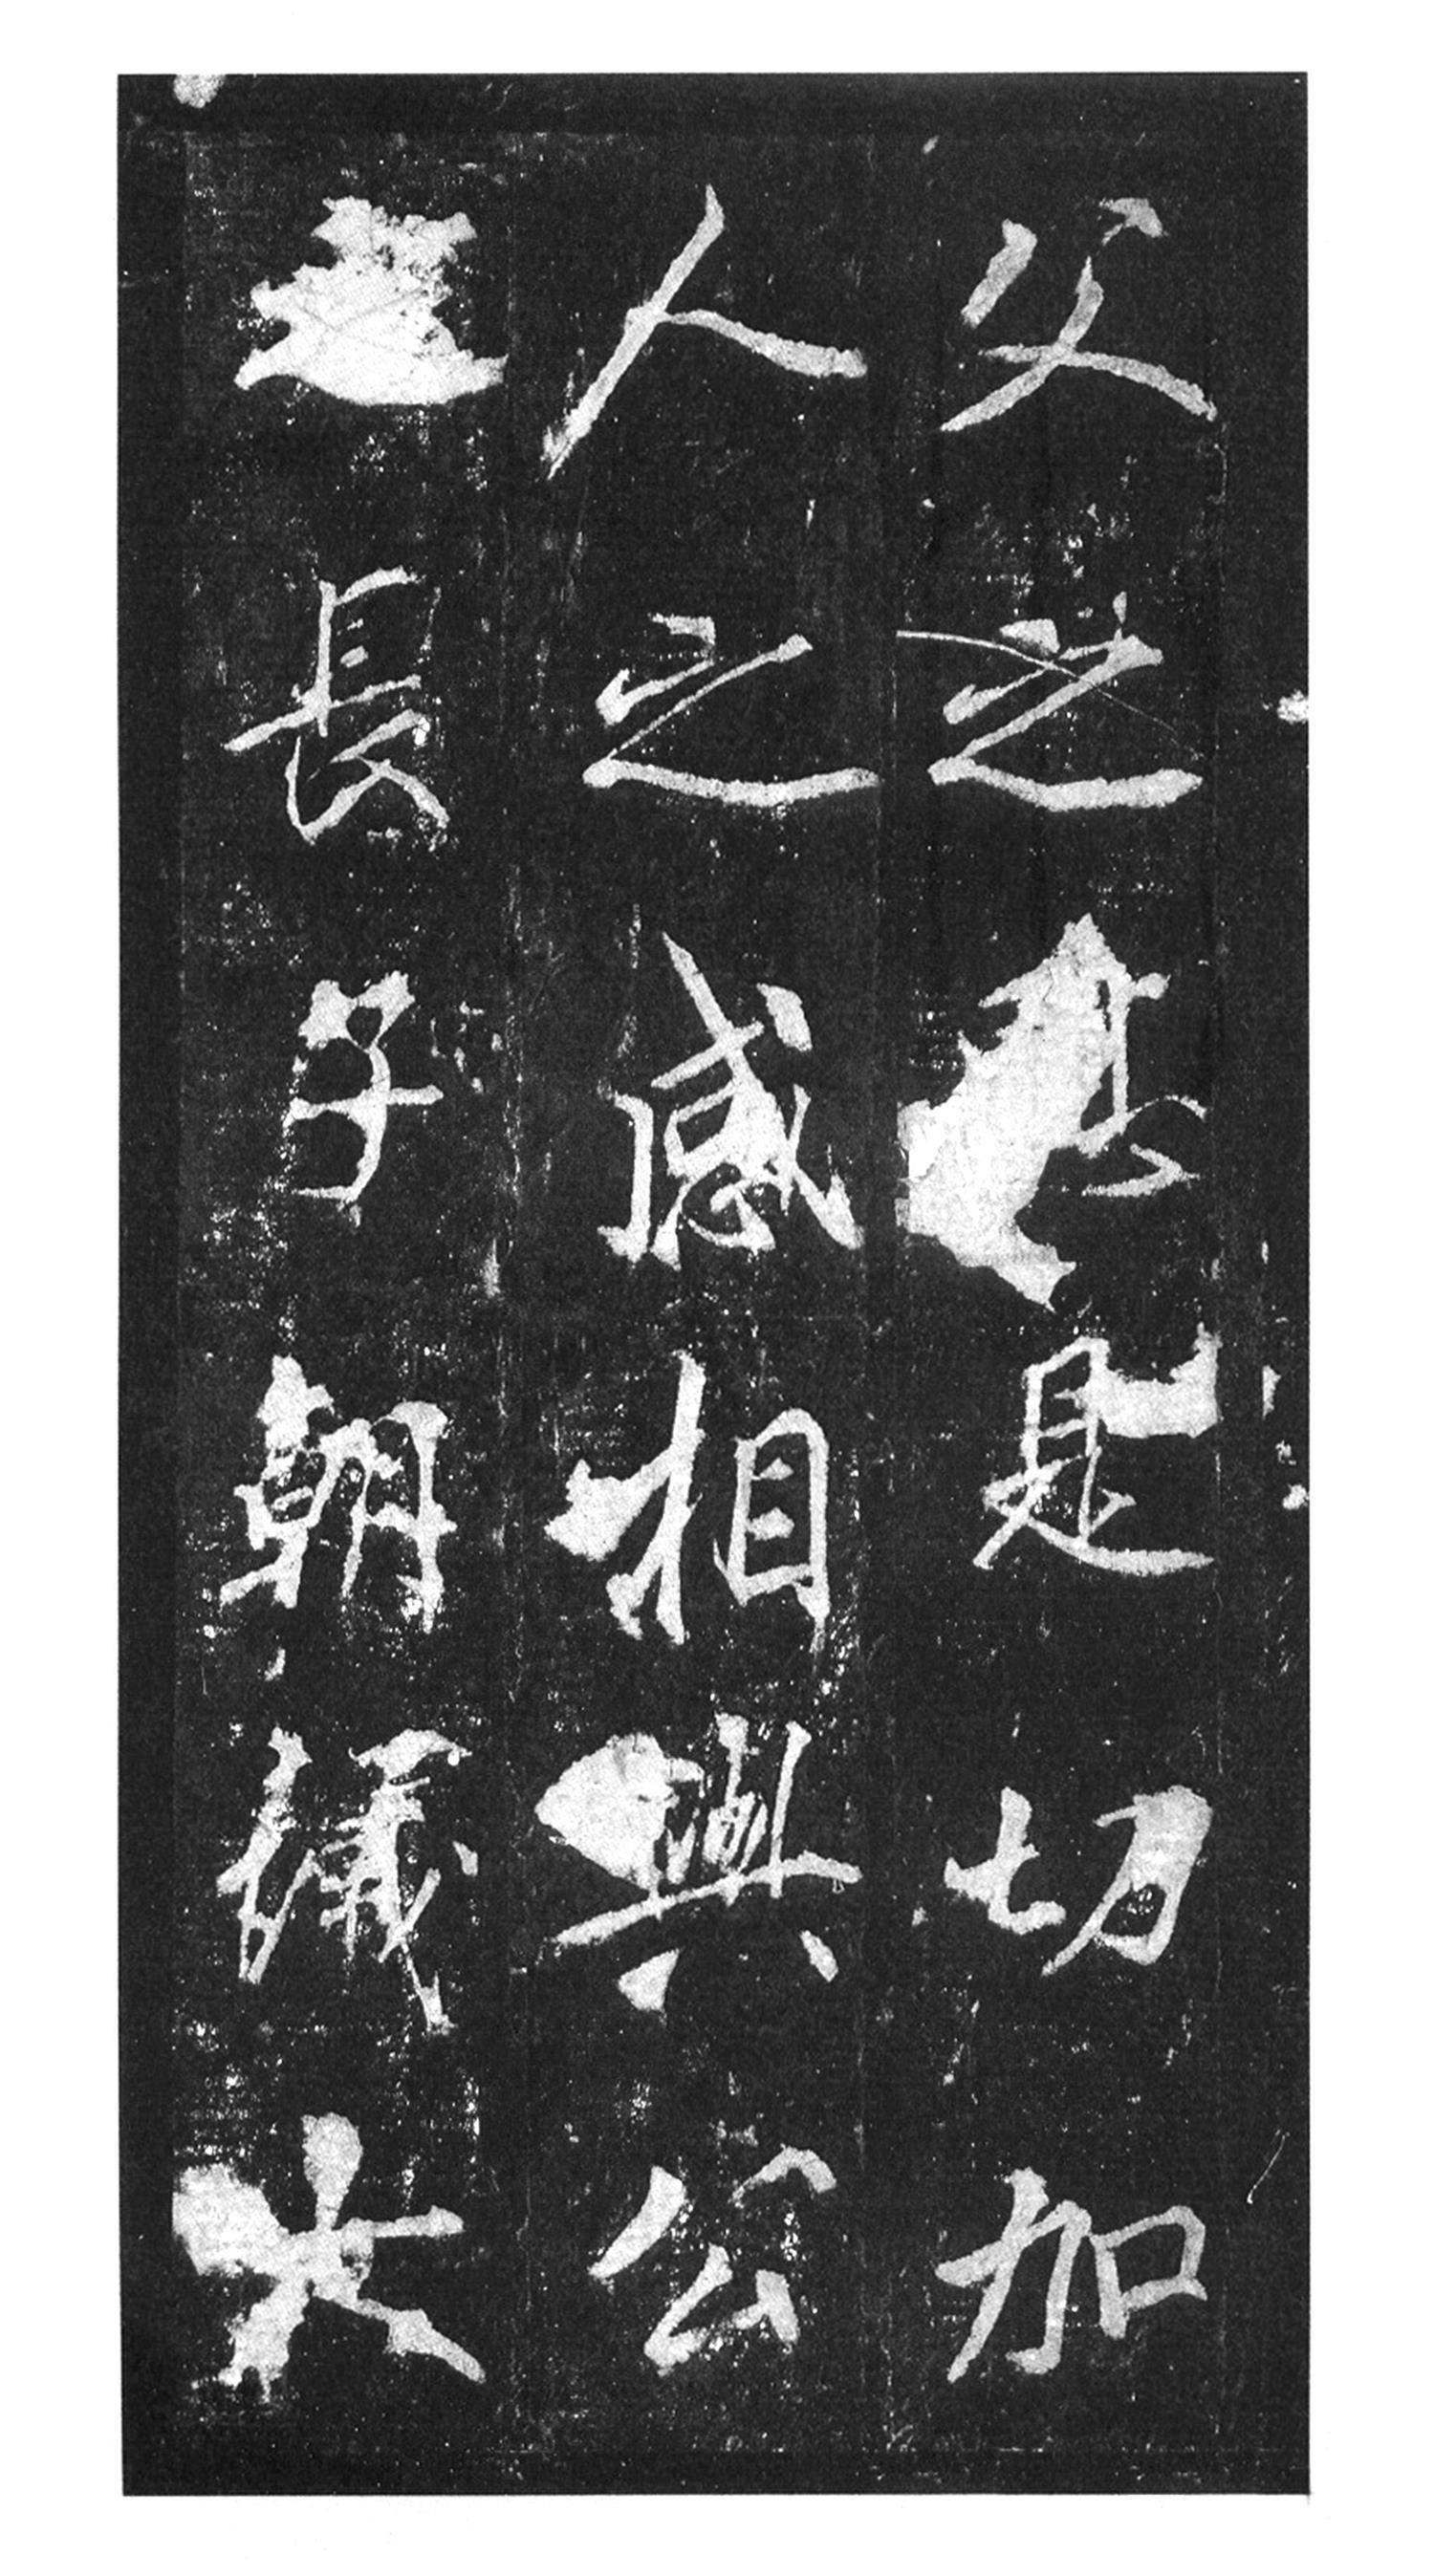 父之甚是切加
人之感相與公
長子朝儀大